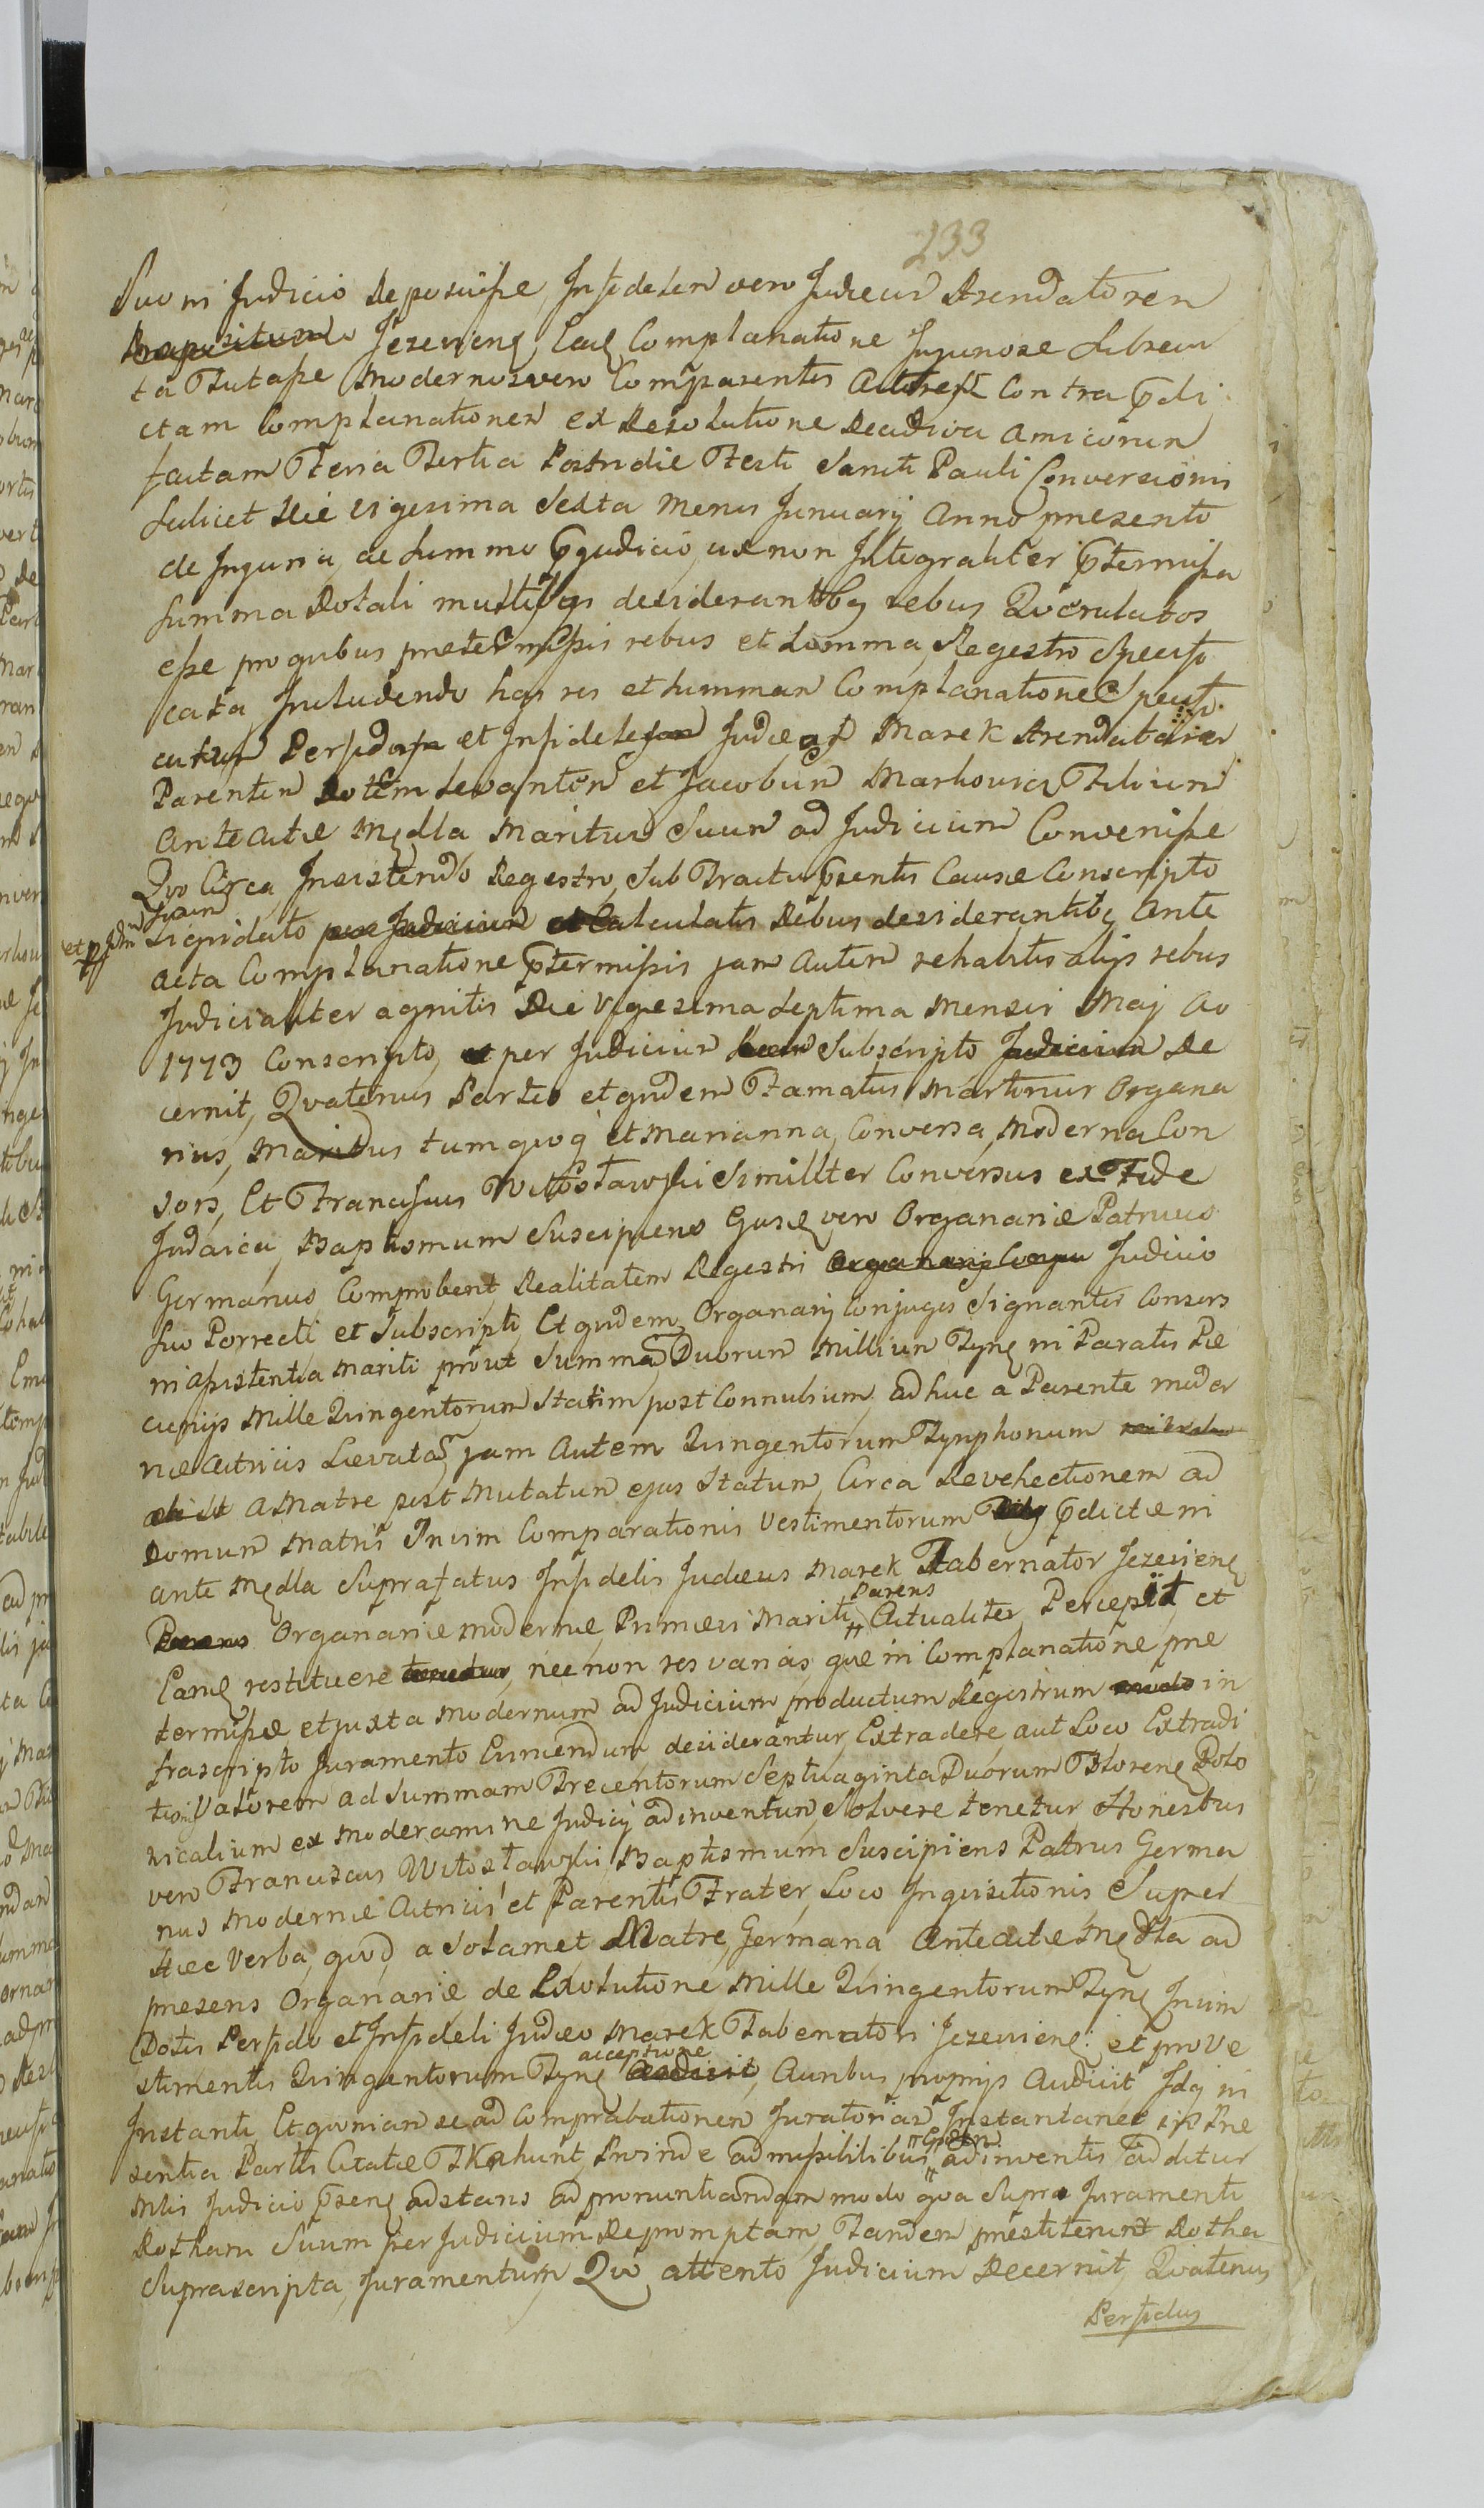 233
Suo in Judicio deposuisse, Infidelem vero Judæum Arendatorem
Jezeviens Complanatione Injuriose
ta Tutasse Modernos vero Comparentes contra p̄di
ctam Complanationem ex Resolutione amicorum
factam Feria Tertia Postridie Festi Sancti Pauli Conversionis
Scilicet Die vigesima Sexta Mensis Januarij Anno presenti
de Injuria, ac summo p̄judicio, ux non Integraliter p̄termissa
Summa Dotali multisqs desiderantibq rebus Querulatos
esse pro quibus pretermissis rebus et Summa, Regestro Specifi
cata, Includendo has res et Summam Complanatione Specifi
catam Perfidum et Infidelem Judæum Marek Arendatorem
Parentem Dotem Levantem et Jacobum Markowicz Filium
Ante actæ Mędla Maritum Suum ad Judicium Convenisse
Quo Circa, Insistendo Regestro, Sub Tractu p̄sentis Causæ Conscripto
Liquidato per Judicium et Calculatis Rebus desiderantibq Ante
acta Complanatione p̄termissis jam Autem rehabitis alijs rebus
Judicialiter agnitis Die Vigesima Septima Mensis Maj Ao
1773 Conscripto, et per Judicium Suum Subscripto Judicium De
cernit, Quatenus Partes et quidem Famatus Martinus Organa
rius, Maritus tum quoq et Marianna, Conversa, Moderna Con
sors, Et Franciscus Witosławski Similiter Conversus ex Fide
Judaica, Baptismum Suscipiens Ejusq vero Organariæ Patruus
Germanus, Comprobent, Realitatem Regestri Organarij Judicio
Suo Porrecti et Subscripti, Et quidem, Organarij Conjuges Signanter Consors
in assistentia Mariti prout Summam Duorum Millium Tynf in Paratis Pe
cunijs Mille Quingentorum Statim post Connubium, adhuc a Parente moder
næ Actricis Levatas, jam Autem Quingentorum Tynphonum
a Matre post Mutatum ejus Statum, Circa Revehectionem ad
Domum Matris Inuim Comparationis Vestimentorum p̄dictæ in
ante Mędla Suprafatus Infidelis Judæus Marek Tabernator Jezeviens
Parens
Parens Organariæ modernæ, Primævi Mariti Actualiter Percepit, et
Eamq restituere tenetur, nec non res varias, quæ in Complanatione pre
termissæ et juxta modernum ad Judicium productum Regestrum modo in
frascripto Juramento Eruendum, desiderantur, Extradere, aut Loco Extradi
tionis Valorem ad Summam Trecentorum Septuaginta Duorum Floren Polo
nicalium ex moderamine Judicij adinventum, Solvere tenetur Honestus
vero Franciscus Witosławski, Baptismum Suscipiens Patrus Germa
nus modernæ Actricis et Parentis Frater, Loco Inquisitionis Super
Hæc Verba, quod, a Solamet Matre, Germana Anteactæ Mędla ad
presens Organariæ de Exolutione Mille Quingentorum Tynf Inuim
Dotis Perfido et Infideli Judæo Marek Tabernatori Jezeviens: et pro Ve
acceptione
stimentis Quingentorum Tynf audivit, Auribus proprijs Audivit Idq in
Instanti, Et quoniam se ad Comprobationem Juratoriam Instantanee in Pre
sentia Partis Citatæ Trahunt, Proinde admissibilibus adinventis additur
Mtis Judicio p̄sens adstans ad pronuntiandam modo qoa Supra Juramenti
Rotham Suum per Judicium Depromptam, Tandem prestiterunt Rotha
Suprascripta, Juramentum, Quo attento Judicium Decernit, Quatenus
Perfidus